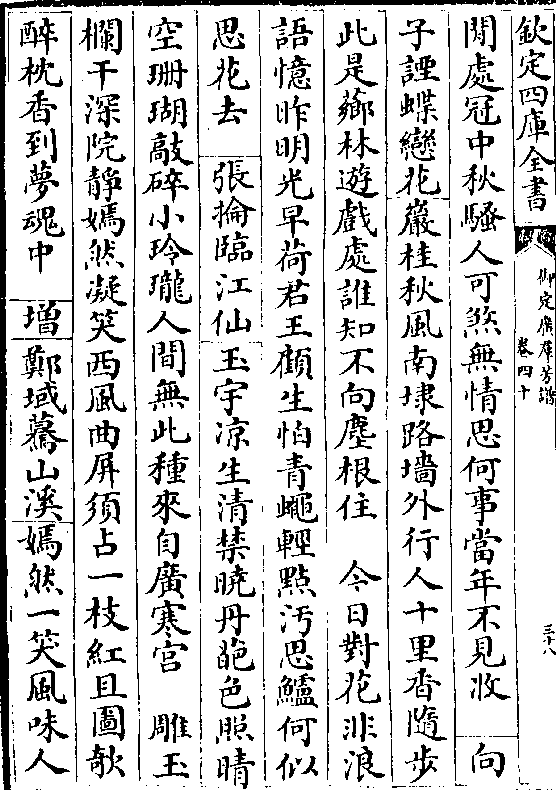 欽定四庫全書
御定廣羣芳譜
卷四十
三十八
開處冠中秋騷人可煞無情思何事當年不見收　向
子諲蝶戀花巖桂秋風南埭路墻外行人十里香隨步
此是薌林遊戲處誰知不向塵根住　今日對花非浪
語憶昨明光早荷君王顧生怕青蠅輕點汚思鱸何似
思花去　張掄臨江仙玉宇凉生清禁曉丹葩色照晴
空珊瑚敲碎小玲瓏人間無此種來自廣寒宮　雕玉
欄干深院靜嫣然凝笑西風曲屏須占一枝紅且圖欹
醉枕香到夢魂中　増　鄭域驀山溪嫣然一笑風味人